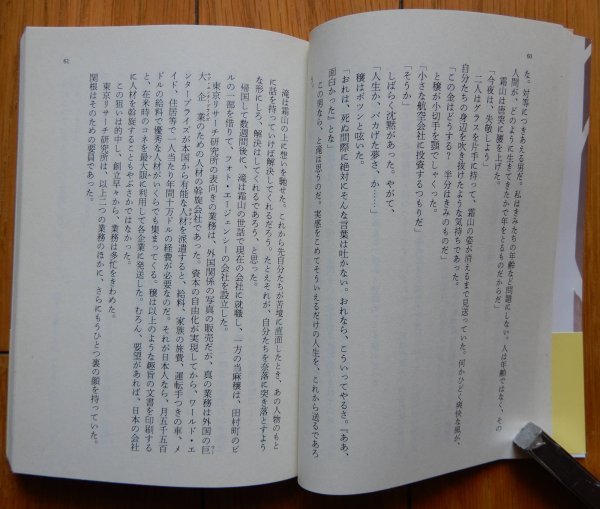 60
た。対等につきあえる男だ。私はきみたちの年齢など問題にしない。人は年齢ではなく、その
人間が、どのように生きてきたかで年をとるものだからだ」
霜山は唐突に腰を上げた。
「今夜は、失敬しよう」
二人は、グラスを片手に持って、霜山の姿が消えるまで見送っていた。何かひどく爽快な風が、
自分たちの身辺を吹き抜けたような気持ちであった。
「この金はどうする? 半分はきみのものだ」
と穣が小切手を頸でしゃくった。
「小さな航空会社に投資するつもりだ」
「そうか」
しばらく沈黙があった。やがて、
「人生か、バカげた夢さ、か……」
穣はポツンと呟いた。
「おれは、死ぬ間際に絶対にそんな言葉は吐かない。おれなら、こういってやるさ。『ああ、
面白かった』とな」
この男なら、と滝は思うのだ。実感をこめてそういえるだけの人生を、これから送るであろ
61
滝は霜山の上に想いを馳せた。これから先自分たちが苦境に直面したとき、あの人物のもと
に話を持っていけば解決してくれるだろう。たとえそれが、自分たちを奈落に突き落とすよう
な形にしろ、解決はしてくれるであろう、と思った。
帰国して数週間後に、滝は霜山の世話で現在の会社に就職し、一方の当麻穣は、田村町のビ
ルの一部を借りて、フォト・エージェンシーの会社を設立した。
東京リサーチ研究所の表向きの業務は、外国関係の写真の販売だが、真の業務は外国の巨
大企業のための人材の斡旋会社であった。資本の自由化が実現してから、ワールド・エ
ンタープライズが本国から有能な人材を派遣すると、給料、家族の旅費、運転手つきの車、メ
イド、住居等で一人当たり年間十万ドルの経費が必要なのだ。それが日本人なら、月五千五百
ドルの給料で優秀な人材がいくらでも集まってくる。穣は以上のような趣旨の文書を印刷する
と、在米時のコネを最大限に利用して各企業に発送した。むろん、要望があれば、日本の会社
に人材を斡旋することもやぶさかではなかった。
この狙いは的中し、創立早々から、業務は多忙をきわめた。
東京リサーチ研究所は、以上二つの業務のほかに、さらにもうひとつ裏の顔を持っていた。
関根はそのための要員であった。